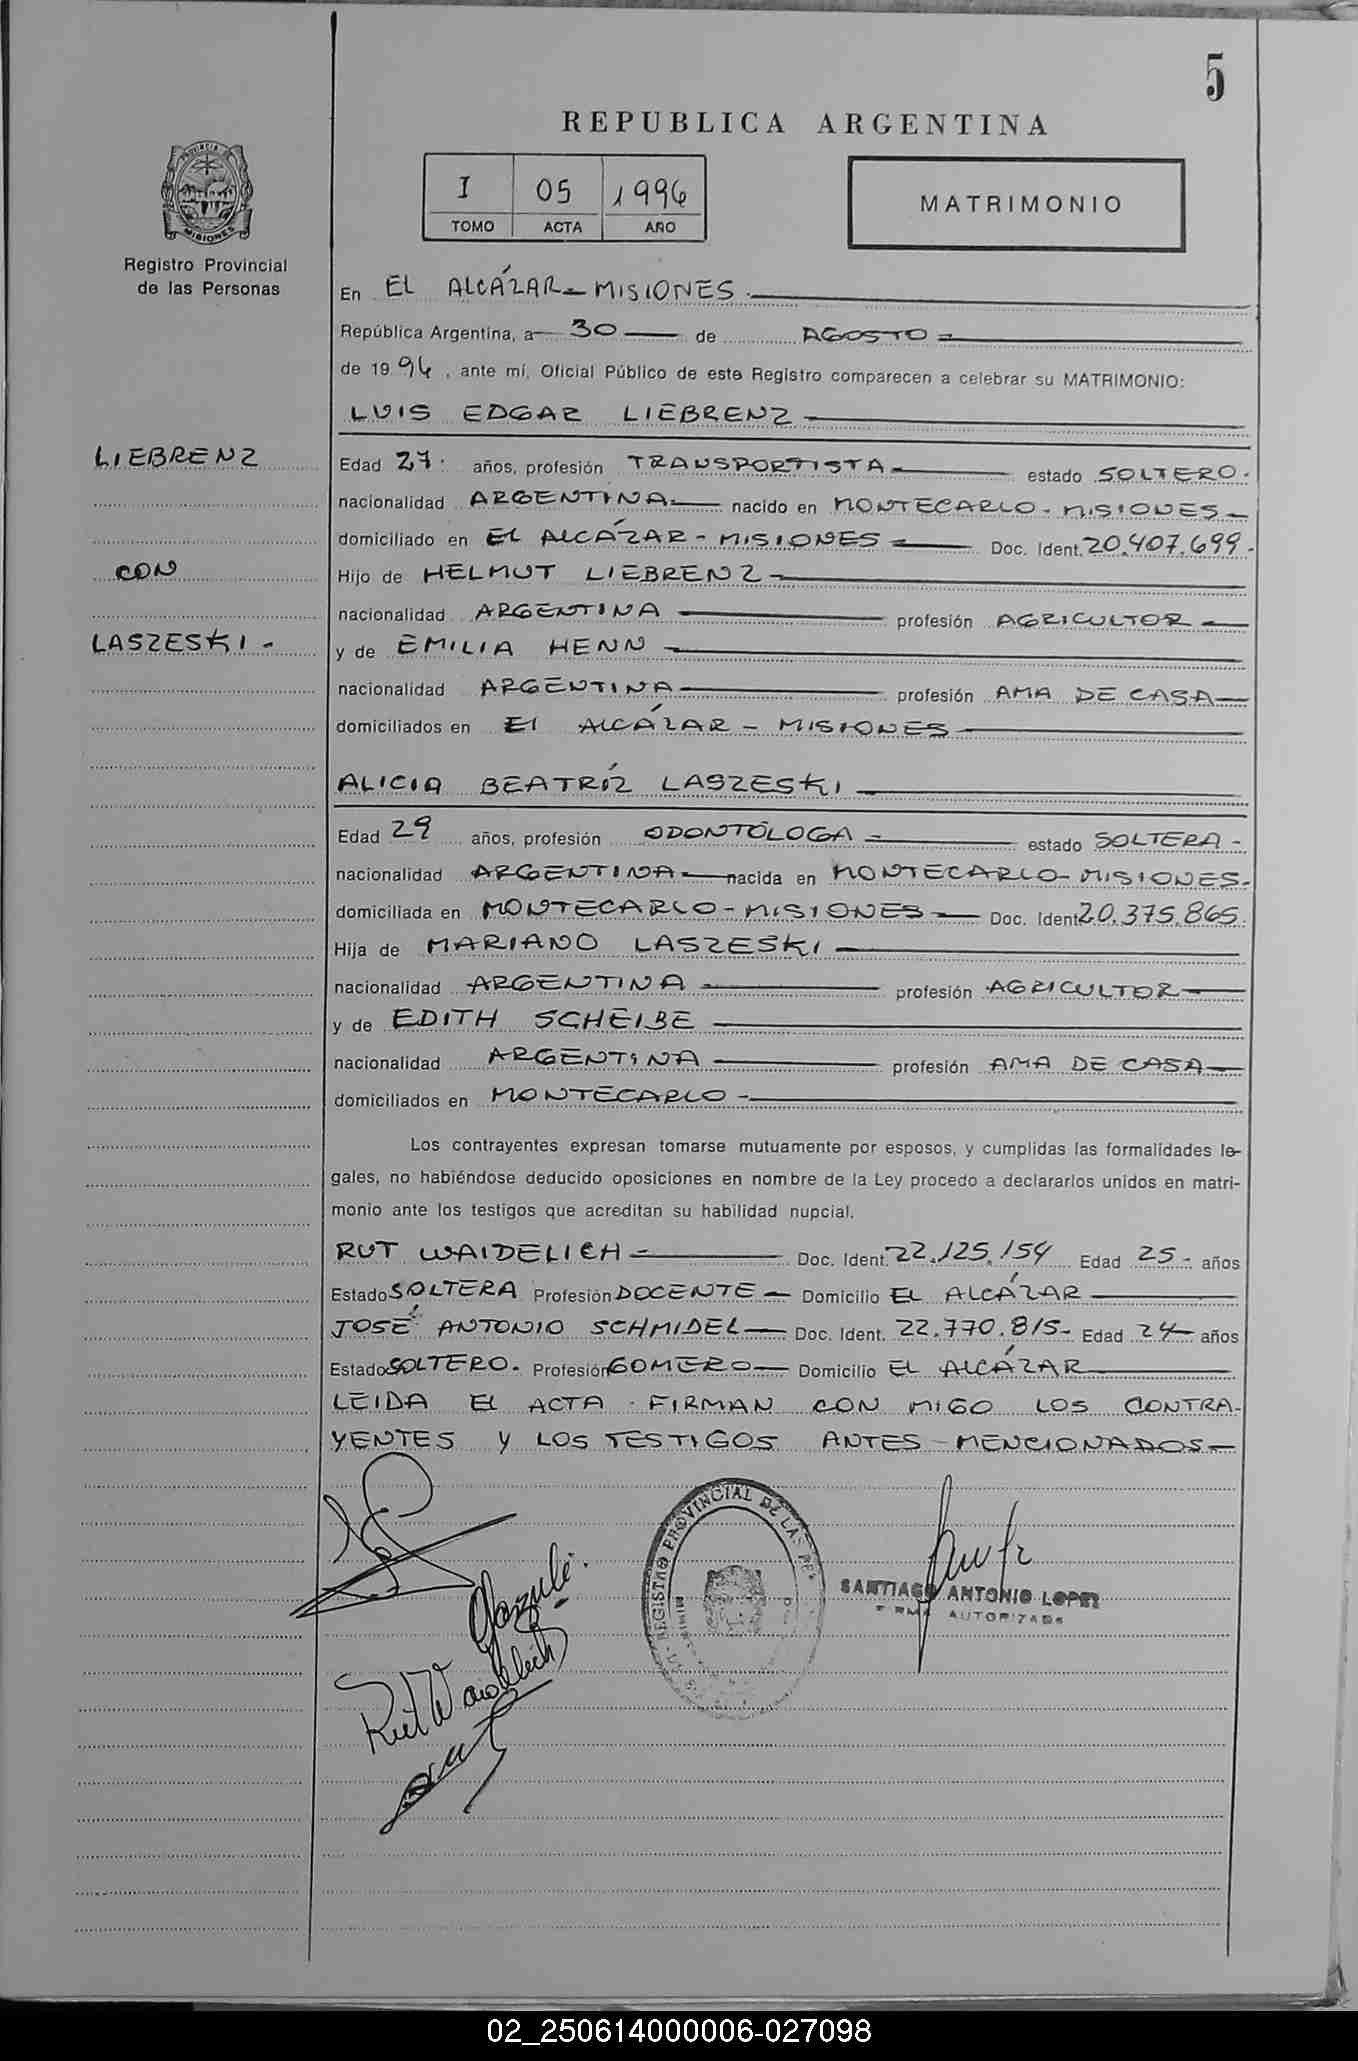 5
REPUBLICA ARGENTINA
I 05 1996
TOMO ACTA AÑO
MATRIMONIO
PROVINCIA
MISIONES
Registro Provincial
de las Personas
En EL ALCÁZAR - MISIONES.
República Argentina, a 30 de AGOSTO
de 1996, ante mí, Oficial Público de este Registro comparecen a celebrar su MATRIMONIO:
LUIS EDGAR LIEBRENZ
LIEBRENZ
CON
LASZESKI -
Edad 27 años, profesión TRANSPORTISTA estado SOLTERO.
nacionalidad ARGENTINA nacido en MONTECARLO - MISIONES
domiciliado en EL ALCÁZAR - MISIONES Doc. Ident. 20.407.699.
Hijo de HELMUT LIEBRENZ
nacionalidad ARGENTINA profesión AGRICULTOR
y de EMILIA HENN
nacionalidad ARGENTINA profesión AMA DE CASA
domiciliados en El ALCÁZAR - MISIONES
ALICIA BEATRÍZ LASZESKI
Edad 29 años, profesión ODONTÓLOGA estado SOLTERA -
nacionalidad ARGENTINA nacida en MONTECARLO - MISIONES.
domiciliada en MONTECARLO - MISIONES Doc. Ident. 20.375.865.
Hija de MARIANO LASZESKI
nacionalidad ARGENTINA profesión AGRICULTOR
y de EDITH SCHEIBE
nacionalidad ARGENTINA profesión AMA DE CASA
domiciliados en MONTECARLO -
Los contrayentes expresan tomarse mutuamente por esposos, y cumplidas las formalidades le-
gales, no habiéndose deducido oposiciones en nombre de la Ley procedo a declararlos unidos en matri-
monio ante los testigos que acreditan su habilidad nupcial.
RUT WAIDELICH - Doc. Ident. 22.125.154 Edad 25 - años
Estado SOLTERA Profesión DOCENTE - Domicilio EL ALCÁZAR
JOSÉ ANTONIO SCHMIDEL - Doc. Ident. 22.770.815 - Edad 24 años
Estado SOLTERO. Profesión GOMERO - Domicilio EL ALCÁZAR
LEIDA EL ACTA FIRMAN CON MIGO LOS CONTRA-
YENTES Y LOS TESTIGOS ANTES MENCIONADOS -
REGISTRO PROVINCIAL DE LAS PER
Rut Waidelich
SANTIAGO ANTONIO LOPEZ
FIRMA AUTORIZADA
02_250614000006-027098